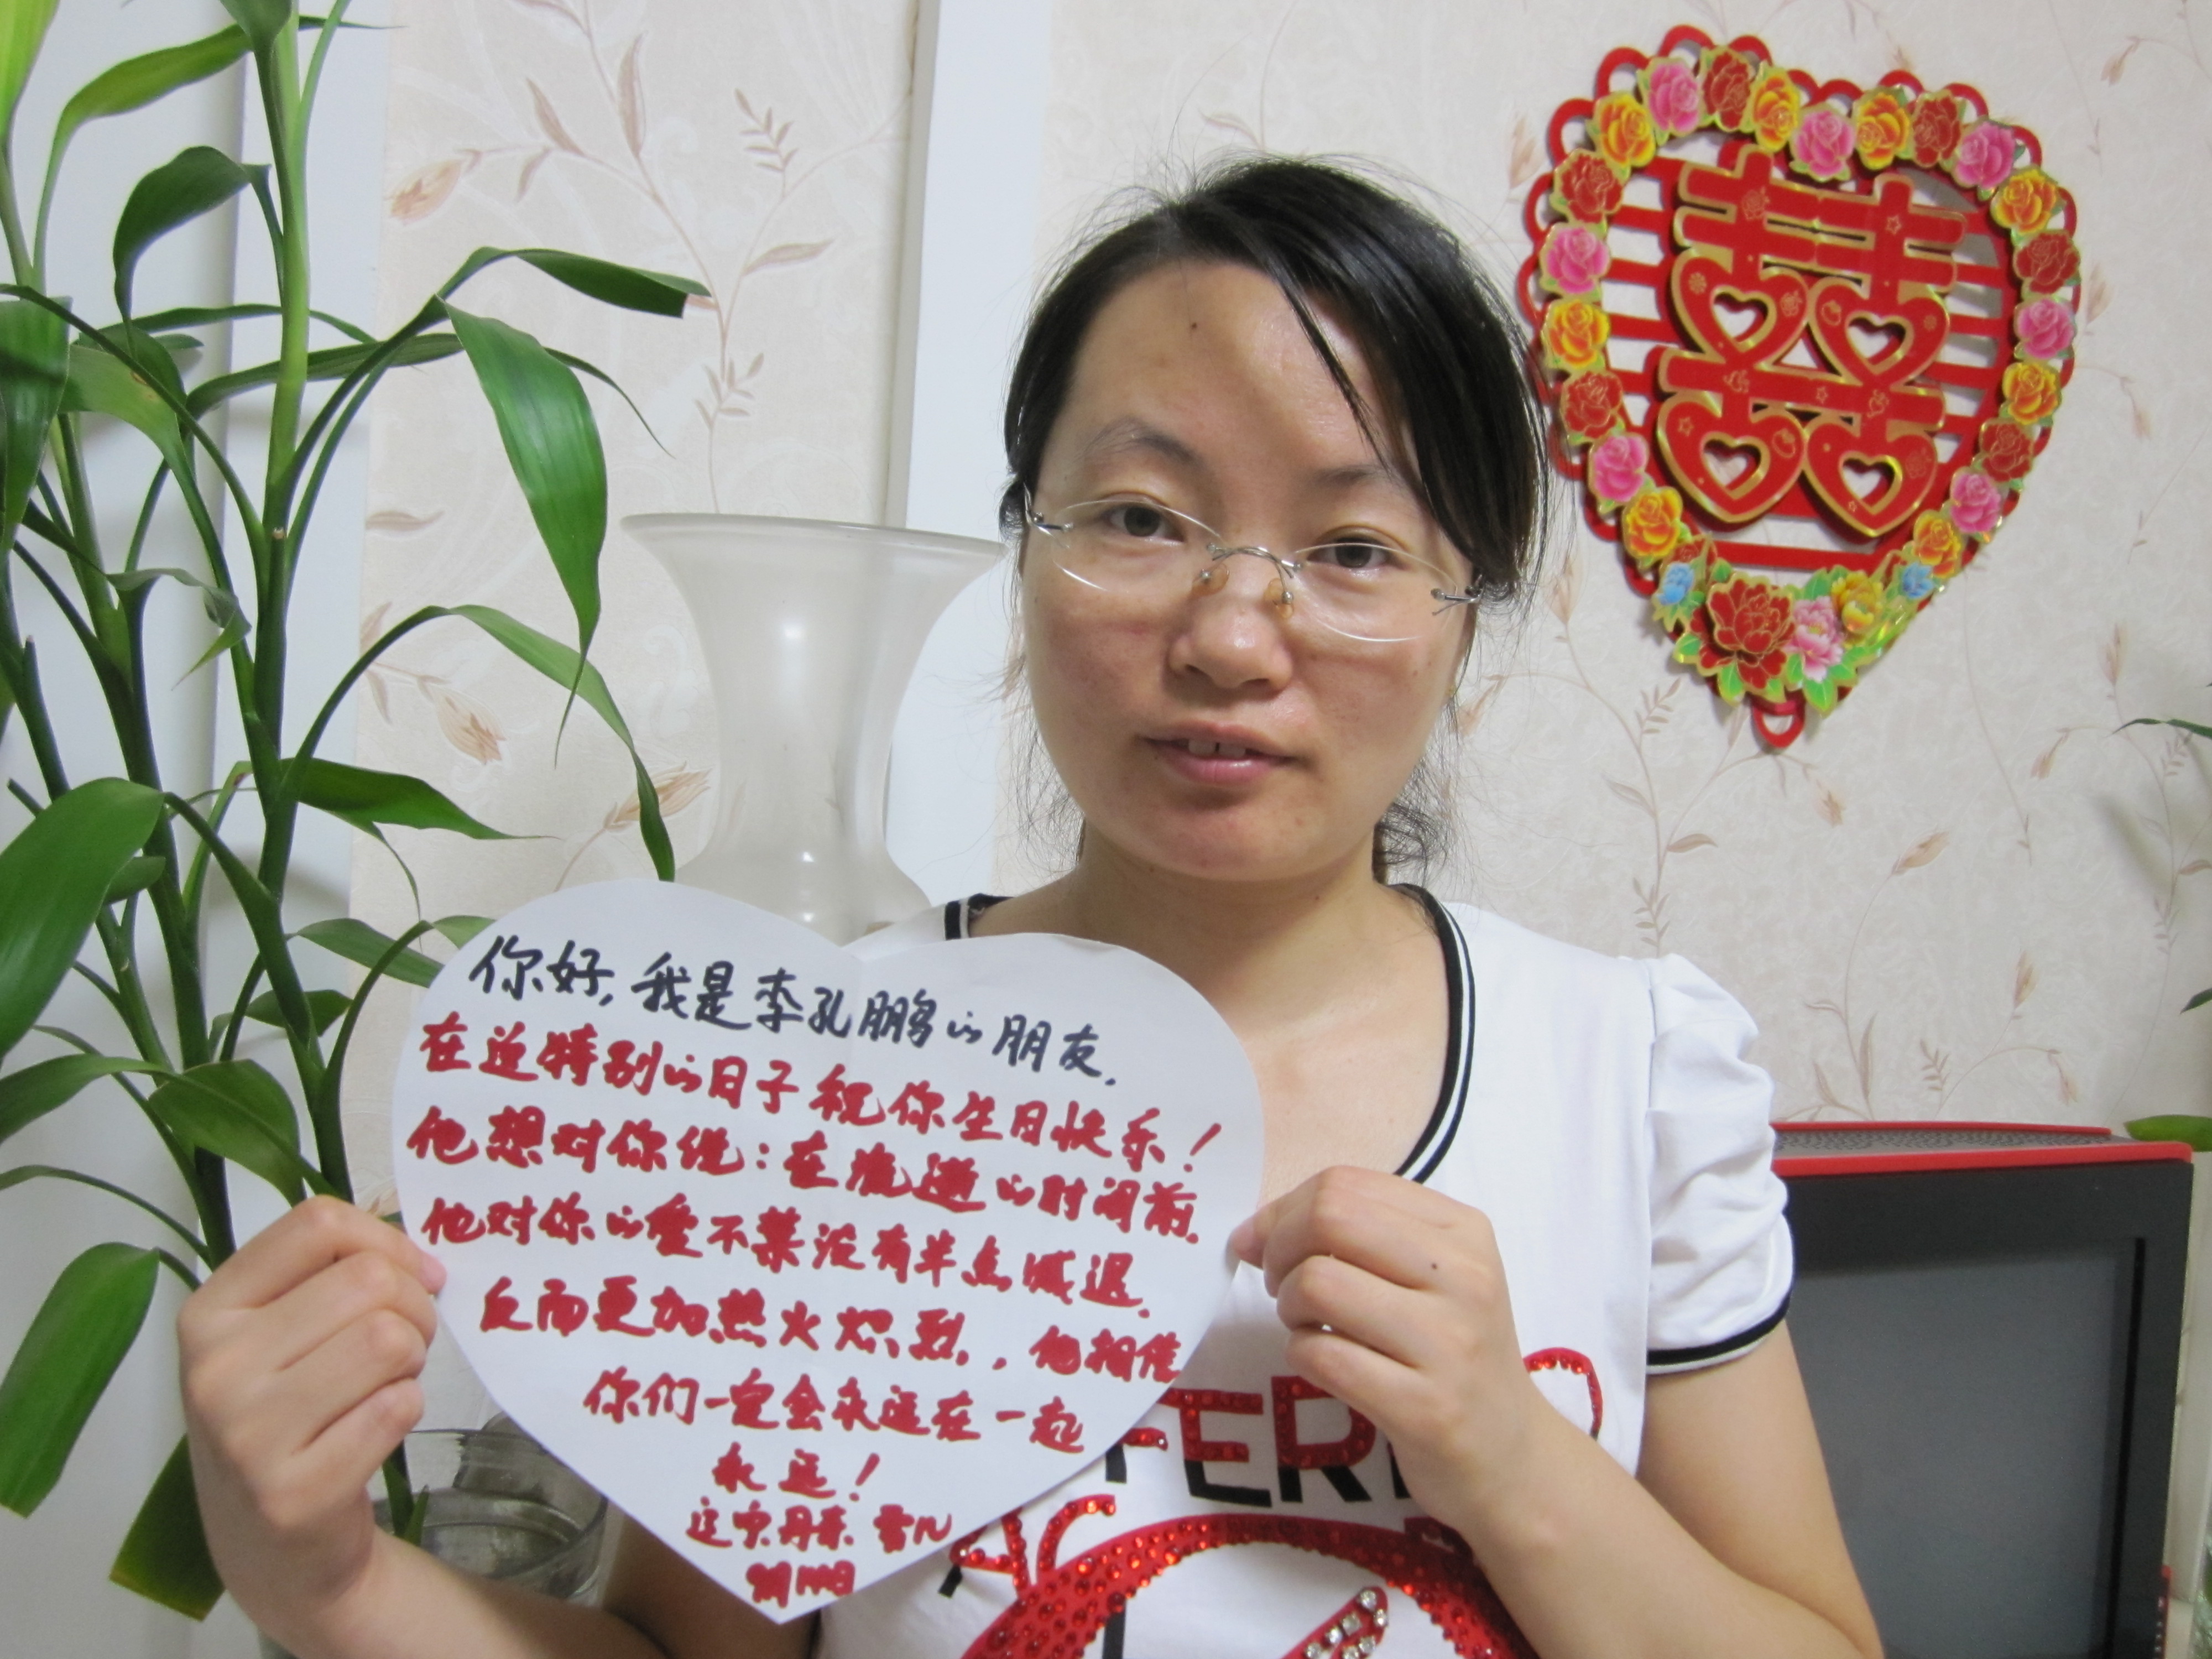 囍
你好,我是李孔鹏的朋友.
在这特别的日子祝你生日快乐!
他想对你说:在流逝的时间前.
他对你的爱不禁没有半点减退.
反而更加热火炽烈.,他相信
你们一定会永远在一起
永远!
辽宁.丹东.
FER